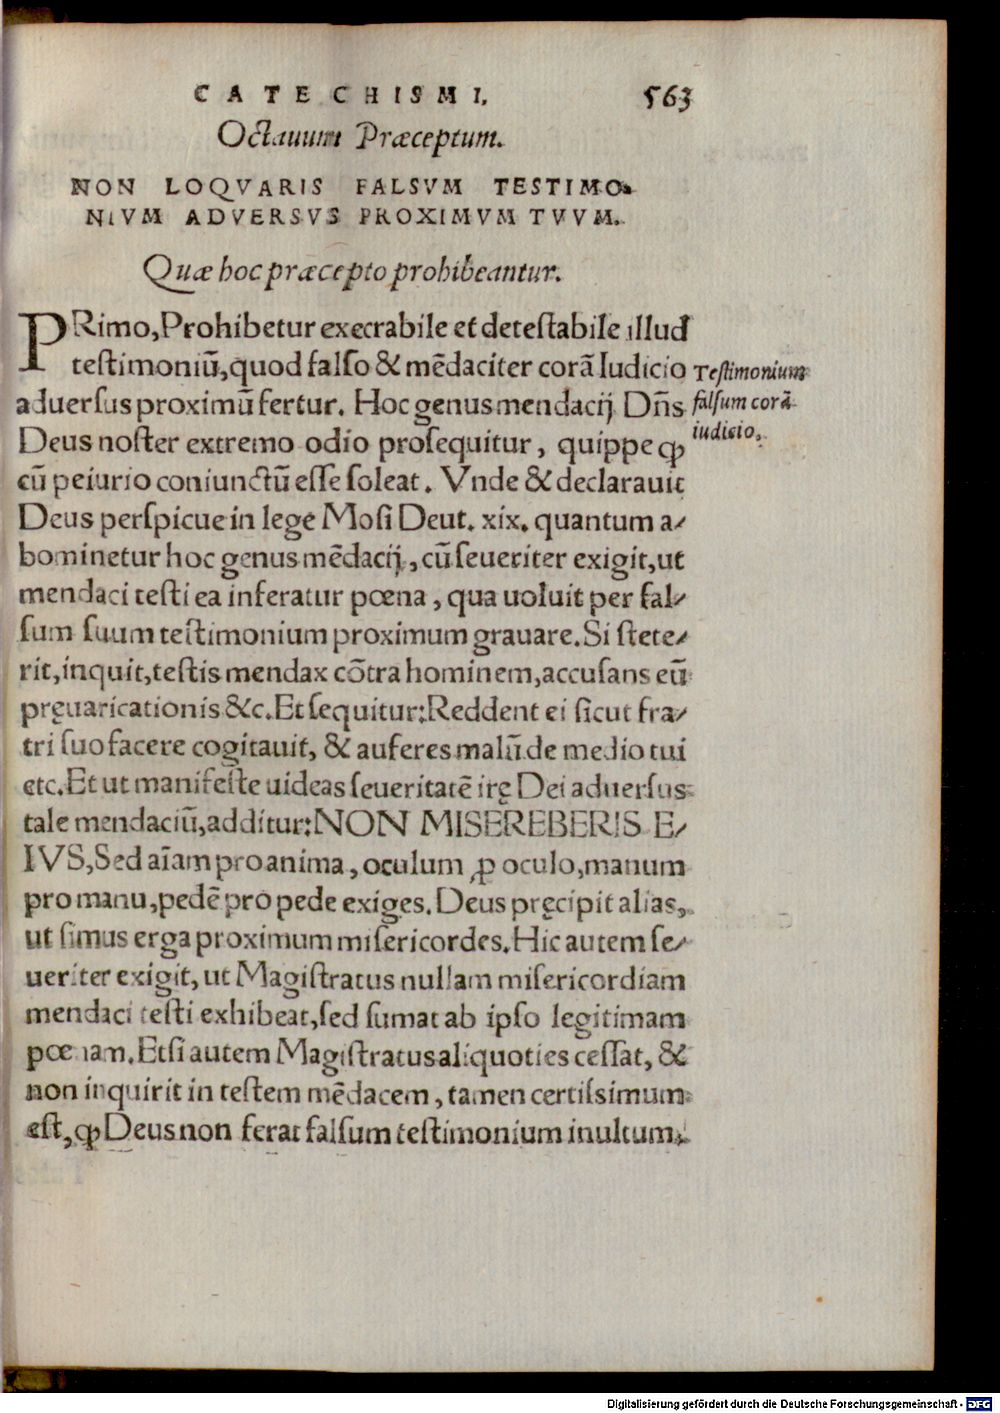 CATECHISMI. 563
Octauum Præceptum.
NON LOQVARIS FALSVM TESTIMO-
NIVM ADVERSVS PROXIMVM TVVM.
Quæ hoc præcepto prohibeantur.
PRimo, Prohibetur execrabile et detestabile illud
testimoniũ, quod falso & mẽdaciter corã Iudicio
aduersus proximũ fertur. Hoc genus mendacij Dñs
Deus noster extremo odio prosequitur, quippe ꝙ
cũ peiurio coniunctũ esse soleat. Vnde & declarauit
Deus perspicue in lege Mosi Deut. xix. quantum a-
bominetur hoc genus mẽdacij, cũ seueriter exigit, ut
mendaci testi ea inferatur pœna, qua uoluit per fal-
sum suum testimonium proximum grauare. Si stete-
rit, inquit, testis mendax cõtra hominem, accusans eũ
pręuaricationis &c. Et sequitur: Reddent ei sicut fra-
tri suo facere cogitauit, & auferes malũ de medio tui
etc. Et ut manifeste uideas seueritatẽ irę Dei aduersus
tale mendaciũ, additur: NON MISEREBERIS E-
IVS, Sed aĩam pro anima, oculum ꝓ oculo, manum
pro manu, pedẽ pro pede exiges. Deus pręcipit alias,
ut simus erga proximum misericordes. Hic autem se-
ueriter exigit, ut Magistratus nullam misericordiam
mendaci testi exhibeat, sed sumat ab ipso legitimam
pœnam. Etsi autem Magistratus aliquoties cessat, &
non inquirit in testem mẽdacem, tamen certissimum
est, ꝙ Deus non ferat falsum testimonium inultum.
Testimonium
falsum corã
iudicio.
Digitalisierung gefördert durch die Deutsche Forschungsgemeinschaft - DFG